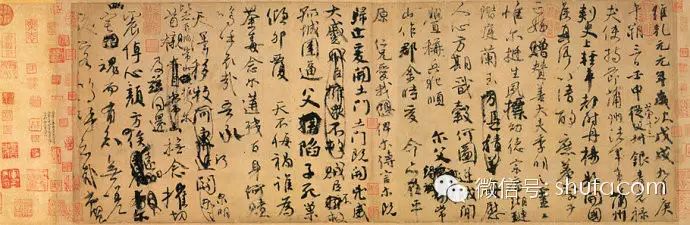 維乾元元年歲次戊戌九月庚
午朔三日壬申第十三叔銀青光祿
夫使持節蒲州諸軍事蒲州
刺史上輕車都尉丹楊縣開國
侯真卿以清酌庶羞祭于
亡姪贈贊善大夫季明之靈曰
惟爾挺生夙標幼德宗廟瑚璉
階庭蘭玉每慰
人心方期戩穀何圖逆賊間
釁稱兵犯順爾父竭誠常
山作郡余時受命亦在平
原仁兄愛我俾爾傳言爾既
歸止爰開土門土門既開凶威
大蹙賊臣不救
孤城圍逼父陷子死巢
傾卵覆天不悔禍誰為
荼毒念爾遘殘百身何贖
嗚乎哀哉吾承
天澤移牧河關泉明
首櫬及茲同還撫念摧切
震悼心顏方俟遠日
魂而有知無嗟
微信号: shufa.com